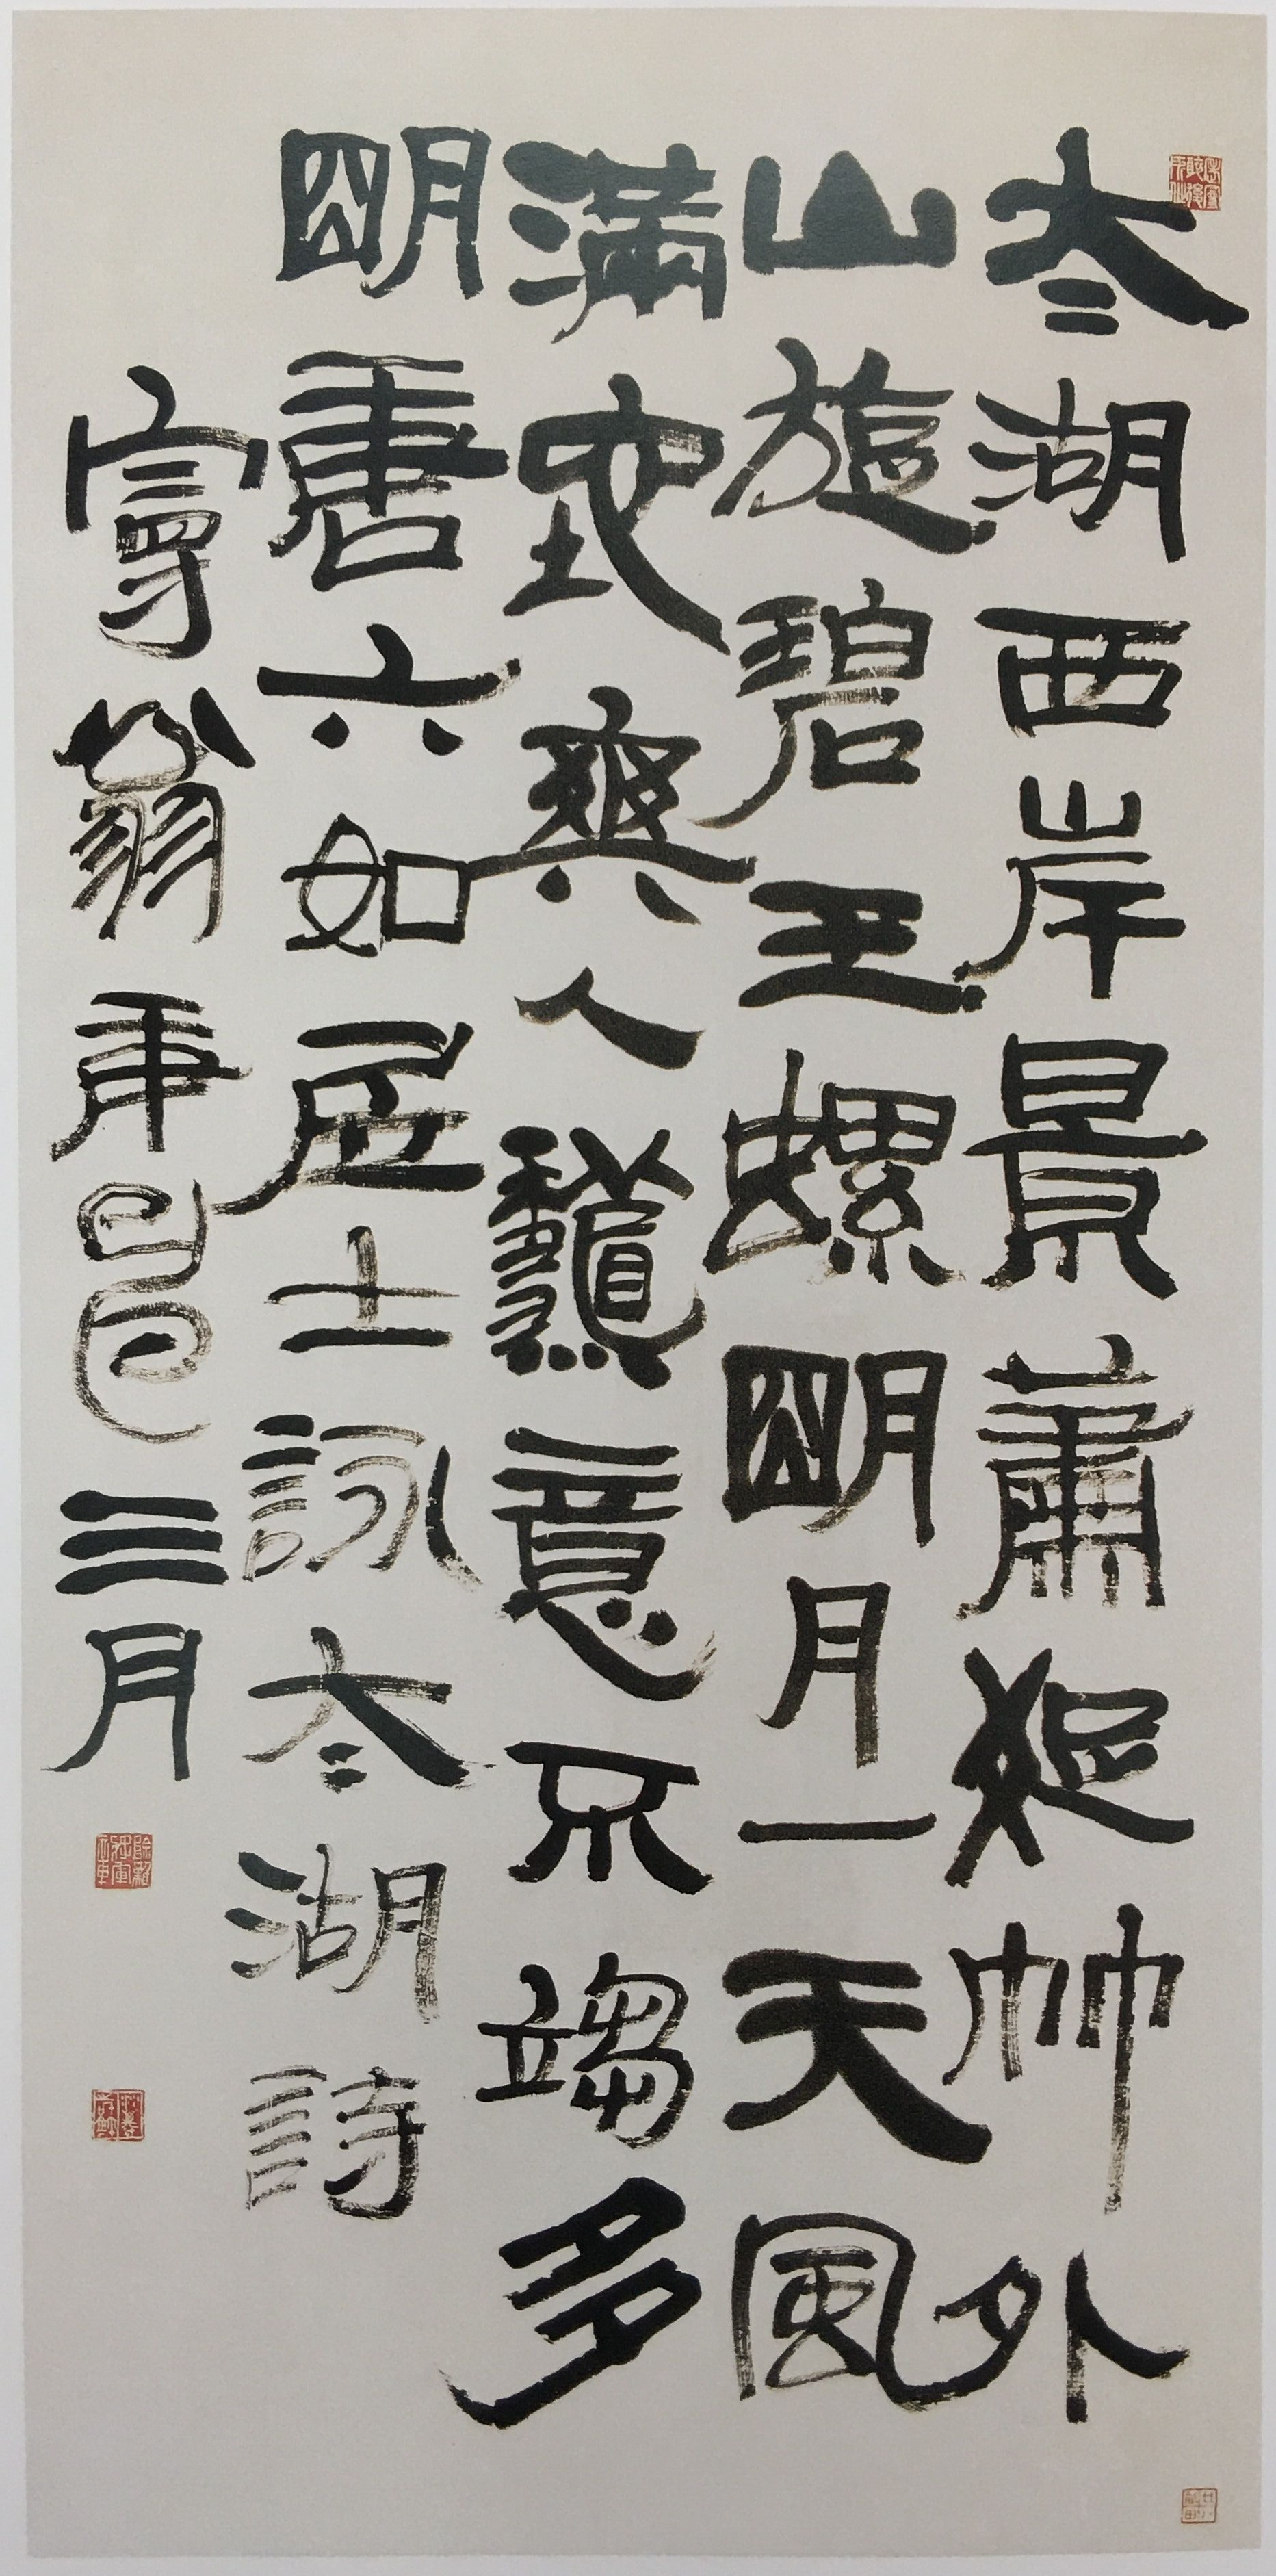 太湖西岸景蕭疏竹外
山旋碧玉螺明月一天風
滿地爽人龝意不須多
明唐六如居士詠太湖詩
寧翁辛巳三月